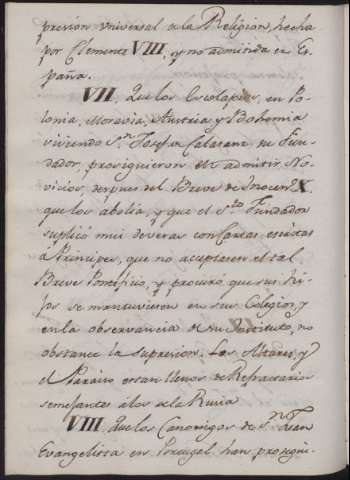 presion vniversal de la Religion, hecha
por Clemente VIII, y no admitida en Es-
paña.
VII. Que los Escolapios, en Po-
lonia, Moravia, Austria y Bohemia
viviendo S.n Josef de Calasanz su Fun-
dador, prosiguieron de admitir No-
vicios, despues del Breve de Inocen.X.
que los abolia, y que el S.to Fundador
suplicó mui deveras con Cartas escritas
á Principes, que no aceptasen el tal
Breve Pontificio, y procuró que sus hi-
jos se mantuviesen en sus Colegios, y
en la observancia de su Instituto, no
obstante la supresion. Los Altares, y
el Paraiso estan llenos de Refractarios
semejantes á los de la Rusia
VIII Que los Canonigos de S.n Juan
Evangelista en Portugal han prosegui-